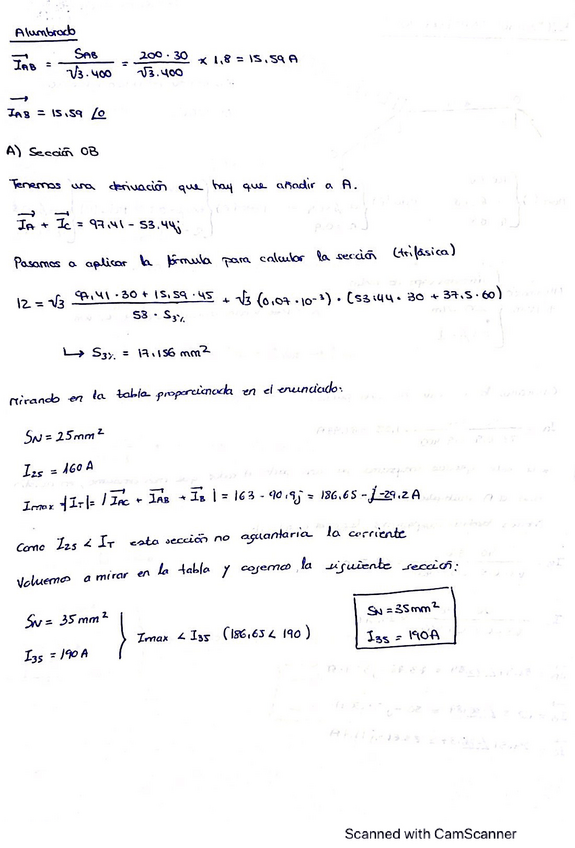 Alumbrado
I_AB = S_AB / √3·400 = 200·30 / √3·400 × 1,8 = 15,59 A
I_AB = 15,59 ∠0
A) Sección OB
Tenemos una derivación que hay que añadir a A.
I_A + I_C = 97,41 - 53,44j
Pasamos a aplicar la fórmula para calcular la sección (trifásica)
12 = √3 97,41·30 + 15,59·45 / 53·S3% + √3 (0,07·10⁻³)·(53,44·30 + 37,5·60)
↳ S3% = 17,156 mm²
Mirando en la tabla proporcionada en el enunciado:
S_N = 25mm²
I25 = 160 A
Imax = |I_T| = |I_AC + I_AB + I_B| = 163 - 90,9j = 186,65 -29,2 A
Como I25 < I_T esta sección no aguantaria la corriente
Volvemos a mirar en la tabla y cojemos la siguiente sección:
S_N = 35 mm²
I35 = 190 A
Imax < I35 (186,65 < 190)
S_N = 35mm²
I35 = 190A
Scanned with CamScanner